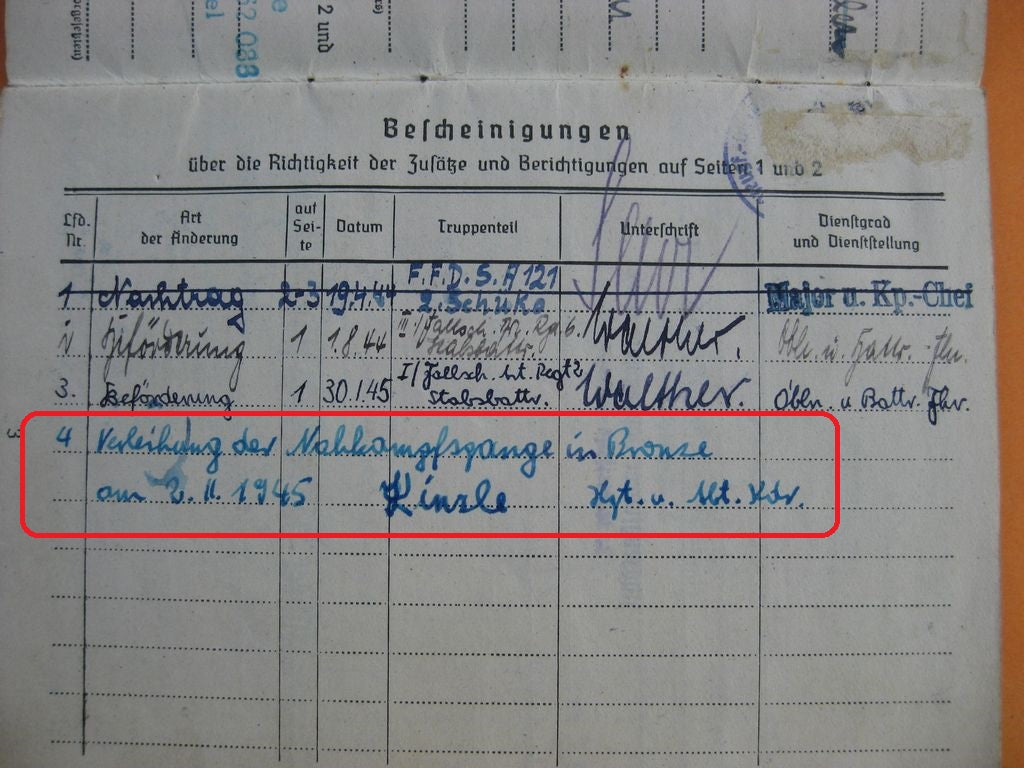 2 und
62 088
Bescheinigungen
über die Richtigkeit der Zusätze und Berichtigungen auf Seiten 1 und 2
Lfd. Nr. Art der Änderung auf Sei-te Datum Truppenteil Unterschrift Dienstgrad und Dienststellung
1 Nachtrag 2-3 19.4.44 F.F.D.S. A 121 2. Schüko Major u. Kp.-Chef
Beförderung 1 1.8.44 Walther.
3. Beförderung 1 30.1.45 I/Fallsch. Art. Regt 2 Stabsbattr. Walther. Obln. u Battr. Fhr.
4 Verleihung der Nahkampfspange in Bronze
am 2.II.1945 Kinzle Hpt. u. Abt. Kdr.
3